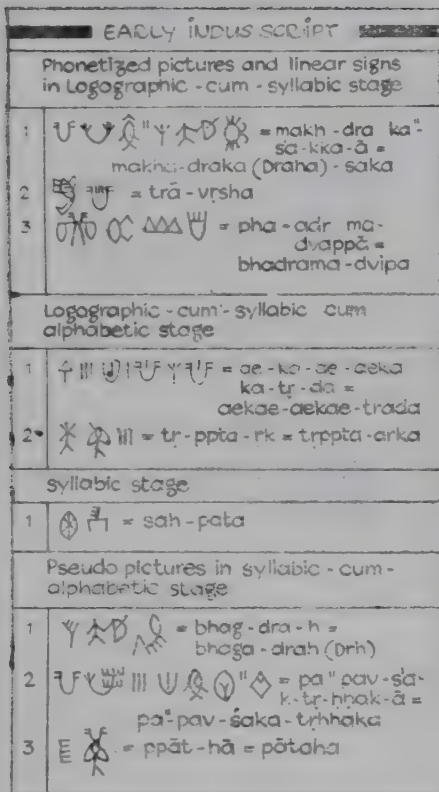 EARLY INDUS SCRIPT
Phonetized pictures and linear signs
in Logographic - cum - syllabic stage
1 = makh - dra ka"-
śa - kka - ā =
makha - draka (Draha) - saka
2 = trā - vṛsha
3 = pha - adr ma -
dvappā =
bhadrama - dvipa
Logographic - cum - syllabic cum
alphabetic stage
1 = ae - ka - ae - aeka
ka - tṛ - da =
aekae - aekae - trada
2 = tṛ - ppta - rk = tṛppta - arka
syllabic stage
1 = sah - pata
Pseudo pictures in syllabic - cum -
alphabetic stage
1 = bhag - dra - h =
bhaga - drah (Dṛh)
2 = pa" pav - śa -
k - tṛ - hhak - ā =
pa" - pav - śaka - tṛhhaka
3 = ppāt - hā = pōtaha